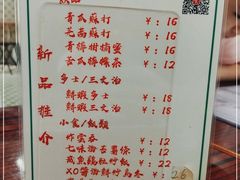 飲品
青瓜蘇打 ¥：16
芫荽蘇打 ¥：16
青檸柑桔蜜 ¥：16
苦瓜檸檬茶 ¥：12
新品推介
多士/三文治
鮮蝦多士 ¥：18
鮮蝦三文治 ¥：18
小食/飯類
炸雲吞 ¥：12
七味汁舌薯條 ¥：12
咸魚雞粒炒飯 ¥：22
XO醬海鮮炒烏冬 ¥：26